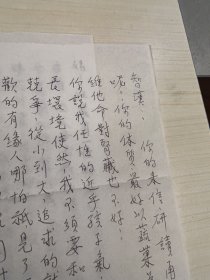 智漢：
你的来信研讀
呢！你的体質最好以蔬菜
維他命對腎臟也不好！
你說我任性的近乎孩子氣
是環境使然，我不須要和
競爭，從小到大追求的
歡的有緣人哪怕祇見了